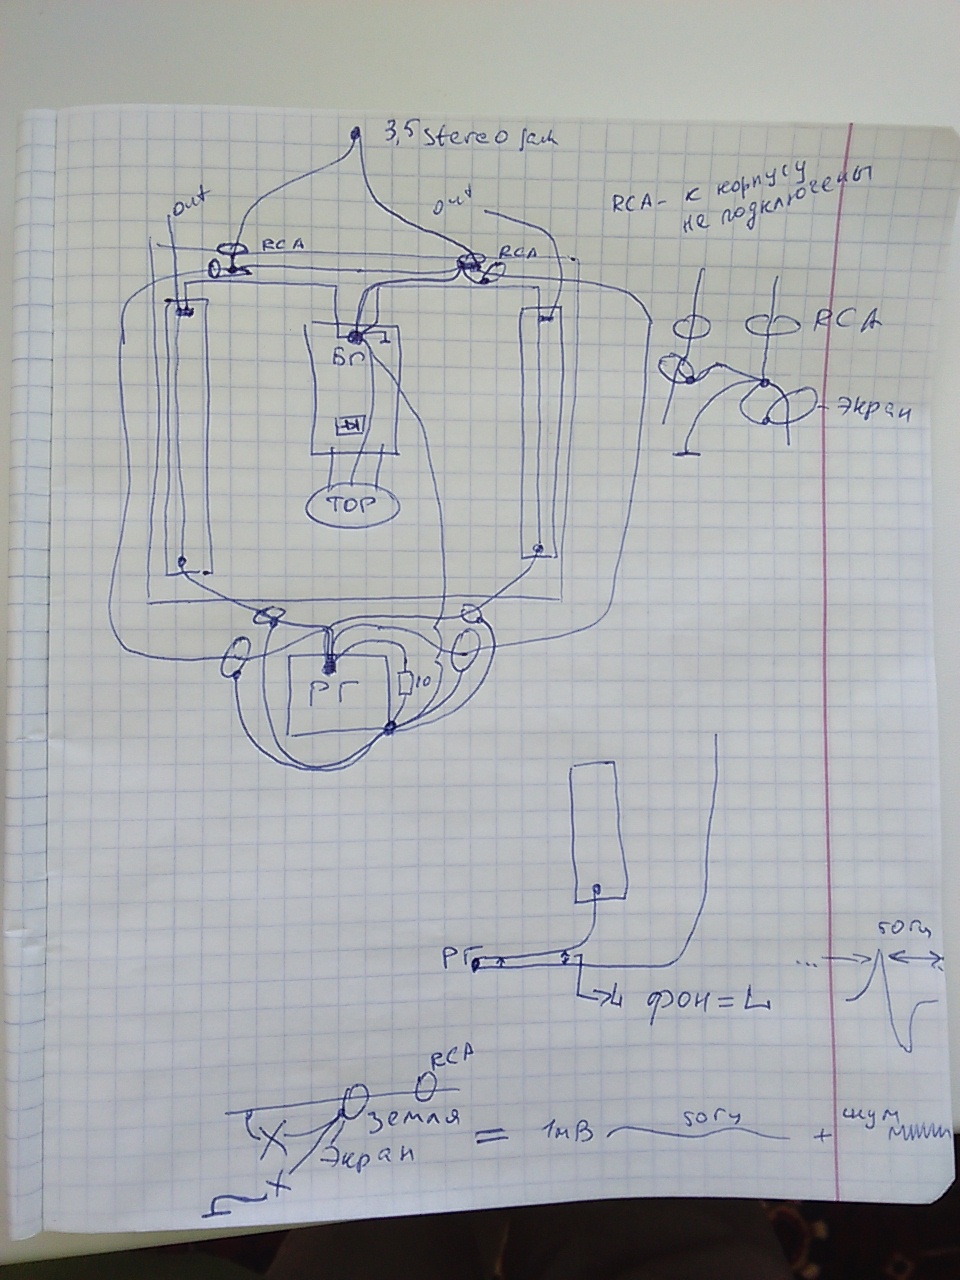 3,5 stereo jack
out
out
RCA - к корпусу
не подключены
RCA
RCA
RCA
БП
Экран
ТОР
РГ
10
РГ
L
фон = L
50Гц
RCA
земля
Экран
= 1мВ
50Гц
+
шум